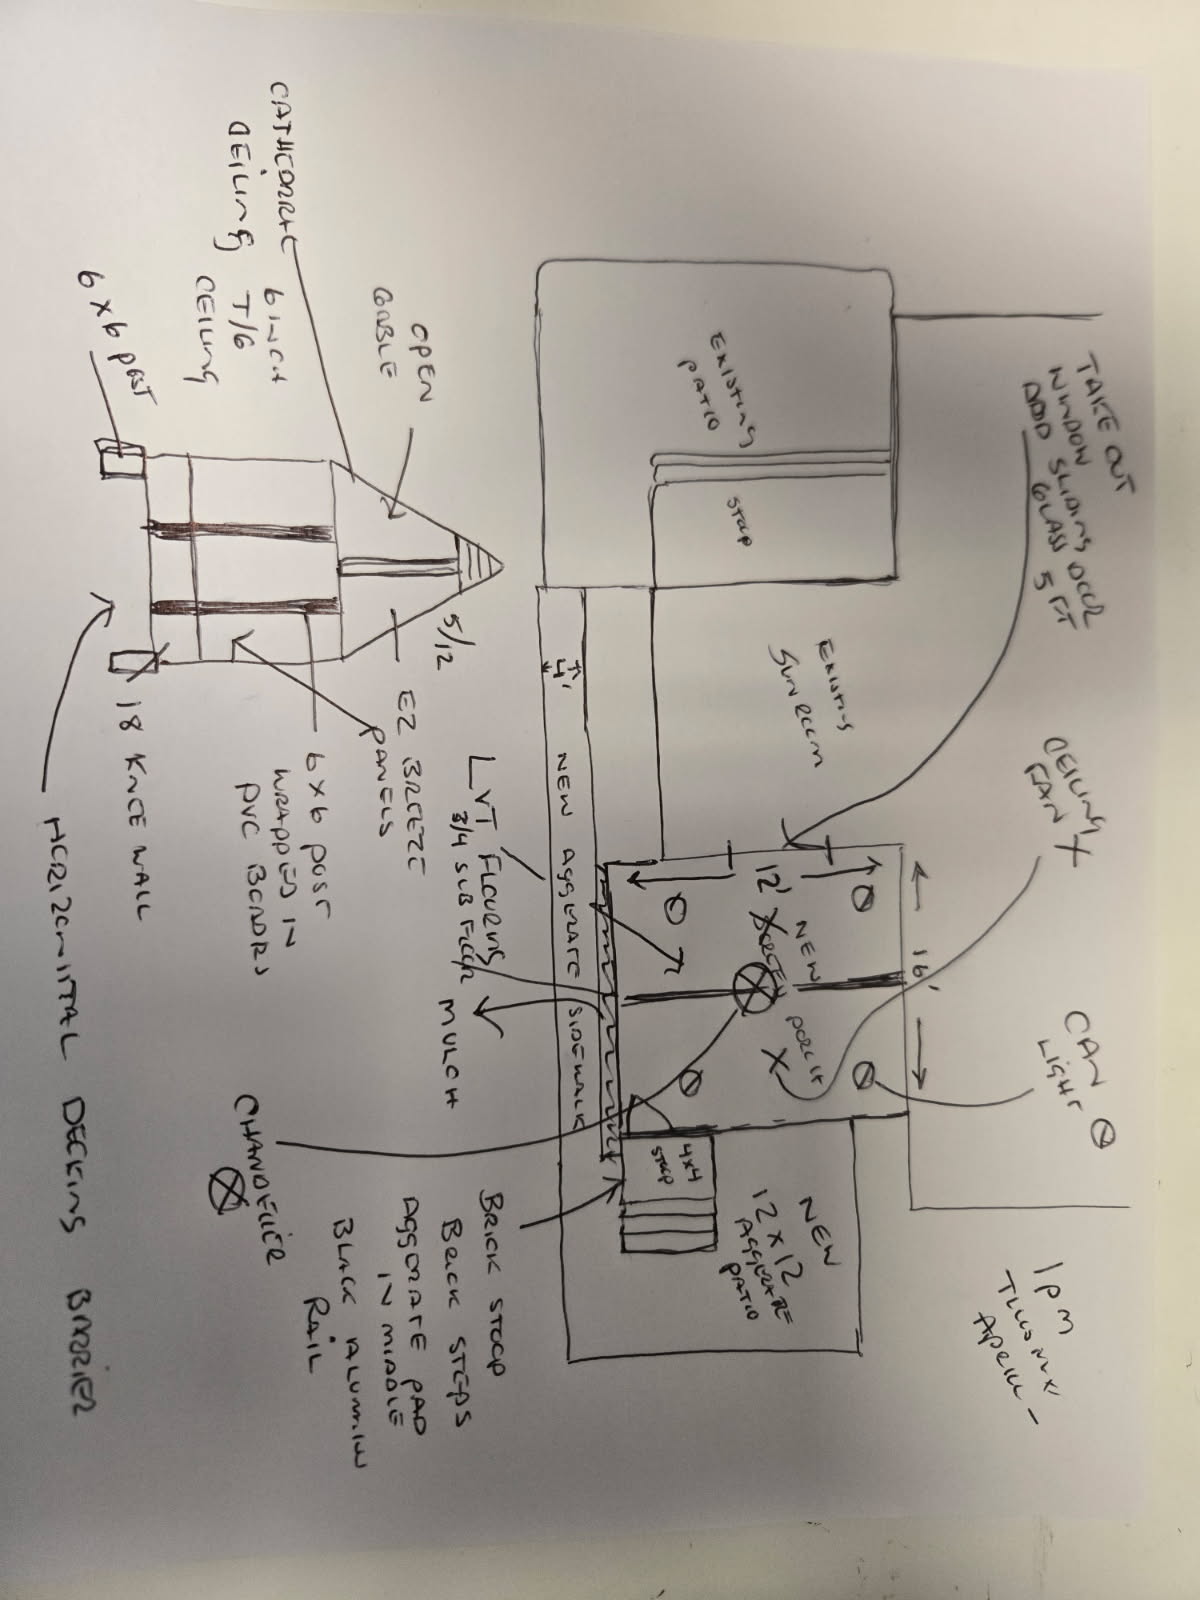 TAKE OUT
WINDOW
ADD SLIDING DOOR
GLASS 5 FT
CEILING
FAN X
CAN
LIGHT
1pm
EXISTING
PATIO
STOOP
EXISTING
SUNROOM
12'
16'
NEW
PORCH
4'
NEW AGGERATE SIDEWALK
4x4
STOOP
NEW
12 x 12
AGGERATE
PATIO
LVT FLOORING
3/4 SUB FLOOR
MULCH
BRICK STOOP
BRICK STEPS
AGGERATE PAD
IN MIDDLE
BLACK ALUMINUM
RAIL
CHANDELIER
OPEN
GABLE
CATHEDRAL
CEILING
6 INCH
T/G
CEILING
6x6 POST
5/12
EZ BREEZE
PANELS
6x6 POST
WRAPPED IN
PVC BOARDS
18 KNEE WALL
HORIZONTAL DECKING BARRIER